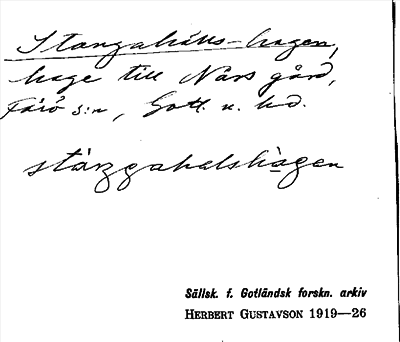 Stangahäls-hagen,
hage till Nors gård,
Fårö s:n, Gotl. n. hd.
stàŋgahalshàgen
Sällsk. f. Gotländsk forskn. arkiv
HERBERT GUSTAVSON 1919—26